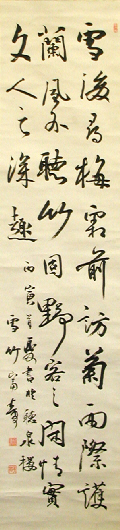 雪後尋梅霜前訪菊雨際護
蘭風外聽竹固野客之閒情實
文人之深趣
丙寅首夏書於聽泉樓
雪竹山崇寿